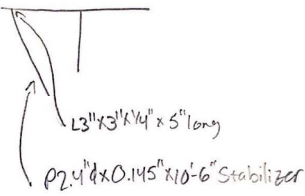 L3"x3"x1/4" x 5" long
P2.4"φx0.145"x10'-6" Stabilizer